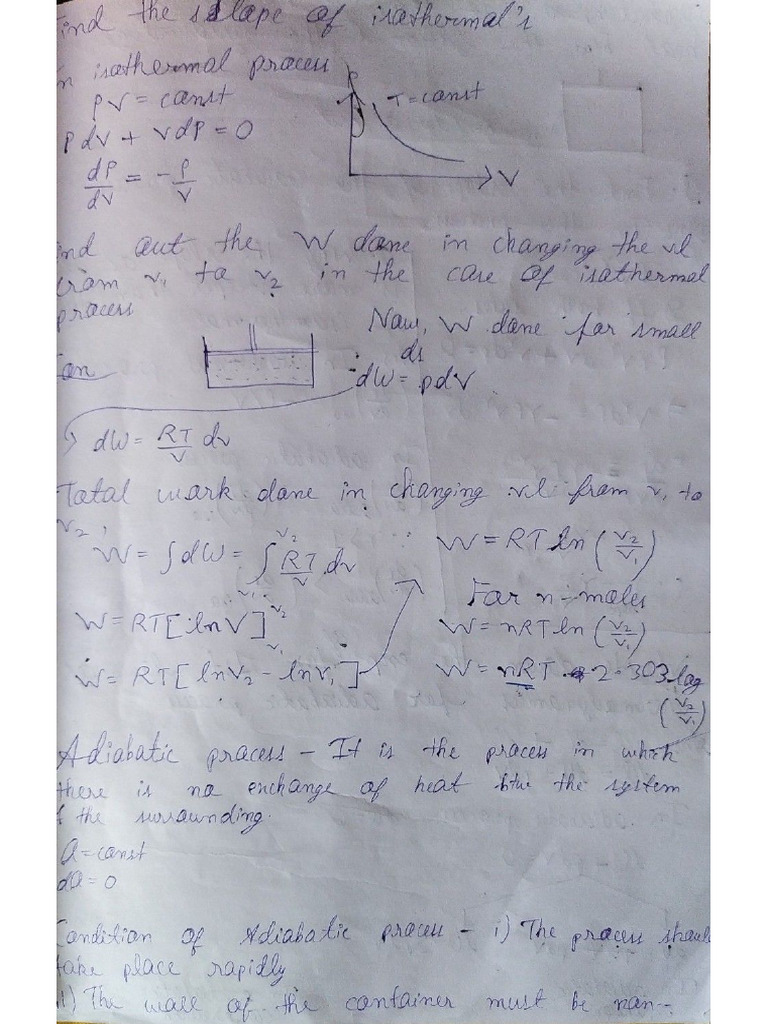 ind the slope of isothermal's
n isothermal process
PV = const
Pdv + vdP = 0
dP/dV = -P/V
P
T = const
V
ind out the W done in changing the vl
from v₁ to v₂ in the case of isothermal
process
Now, W done for small
ds
dW = pdV
dW = RT/V dv
Total work done in changing vl from v₁ to
v₂,
W = ∫dW = ∫ᵥ₁ⱽ² RT/V dv
W = RT[lnV]ᵥ₁ⱽ²
W = RT[lnV₂ - lnV₁]
W = RT ln (V₂/V₁)
For n-moles
W = nRT ln (V₂/V₁)
W = nRT 2.303 log
(V₂/V₁)
Adiabatic process - It is the process in which
there is no exchange of heat btw the system
& the surrounding.
Q = const
dQ = 0
Condition of Adiabatic process - i) The process shoul
take place rapidly
ii) The wall of the container must be non-